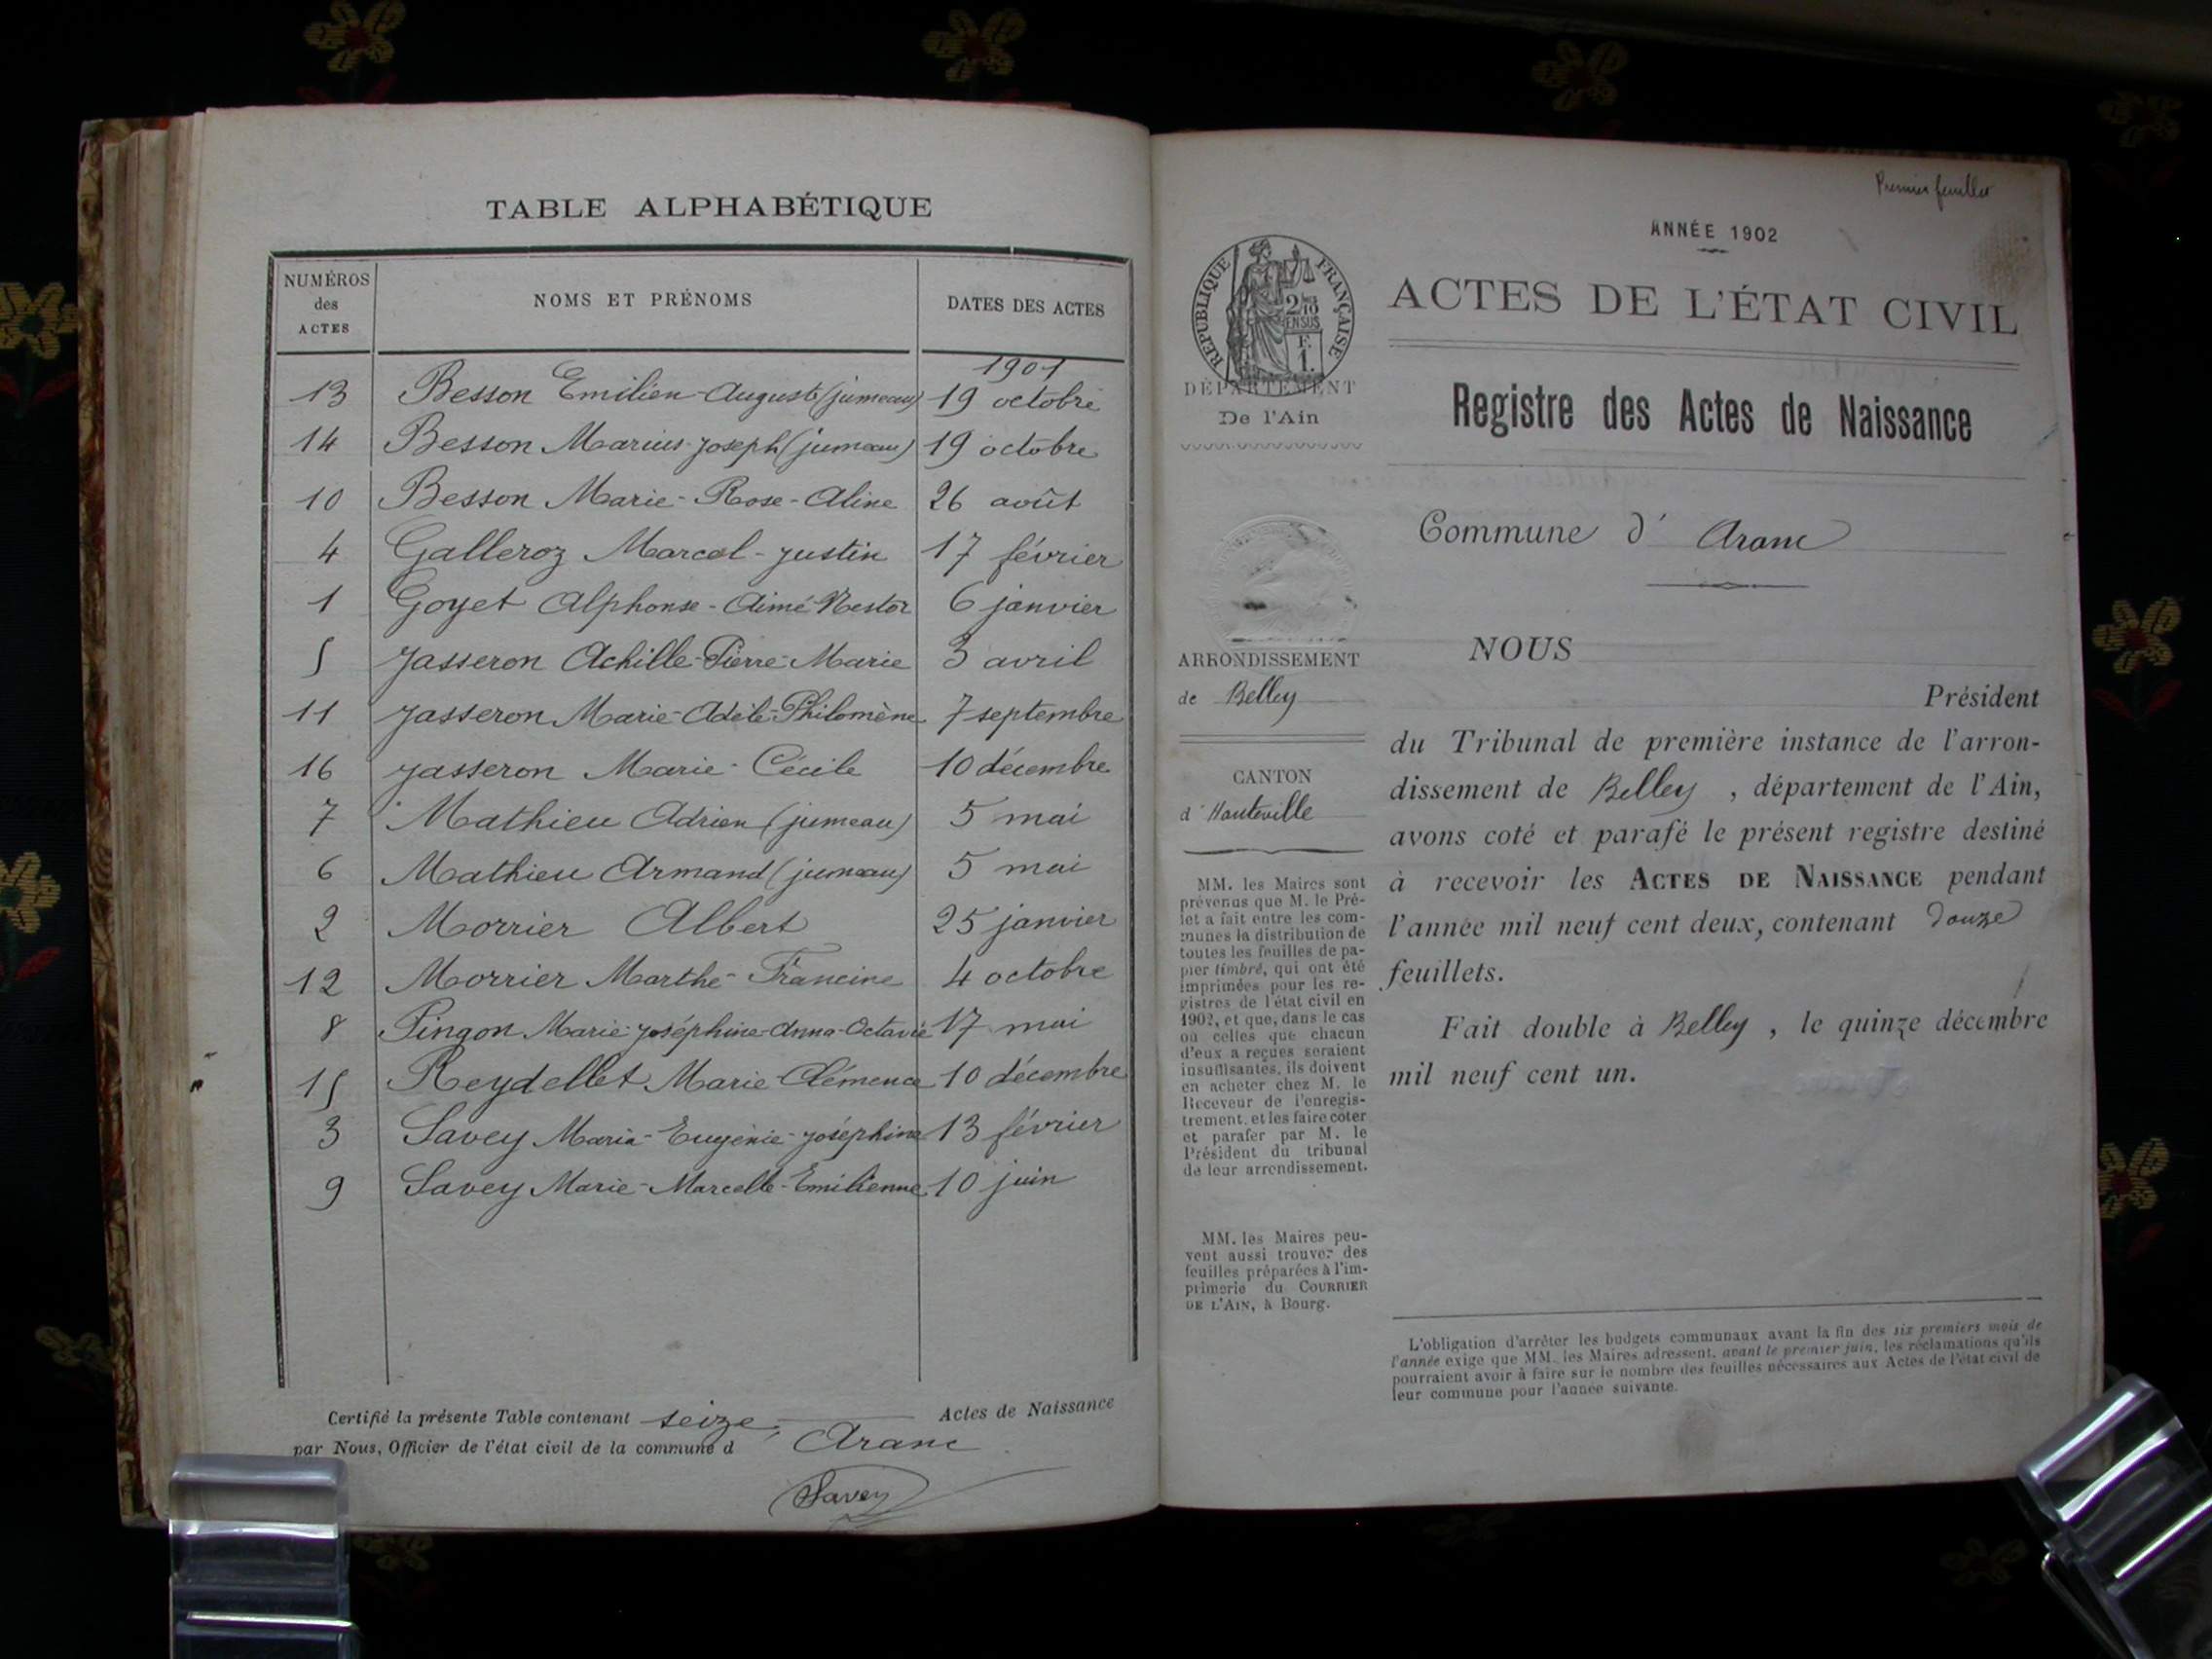 TABLE ALPHABÉTIQUE
NUMÉROS des ACTES NOMS ET PRÉNOMS DATES DES ACTES
1901
13 Besson Emilien-Auguste (jumeau) 19 octobre
14 Besson Marius-Joseph (jumeau) 19 octobre
10 Besson Marie-Rose-Aline 26 août
4 Galleroz Marcel-Justin 17 février
1 Goyet Alphonse-Aimé-Nestor 6 janvier
5 Jasseron Achille-Pierre-Marie 3 avril
11 Jasseron Marie-Adèle-Philomène 7 septembre
16 Jasseron Marie-Cécile 10 décembre
7 Mathieu Adrien (jumeau) 5 mai
6 Mathieu Armand (jumeau) 5 mai
2 Morrier Albert 25 janvier
12 Morrier Marthe-Francine 4 octobre
8 Pingon Marie-Joséphine-Anna-Octavie 17 mai
15 Reydellet Marie-Clémence 10 décembre
3 Savey Maria-Eugénie-Joséphine 13 février
9 Savey Marie-Marcelle-Emilienne 10 juin
Certifié la présente Table contenant seize Actes de Naissance
par Nous, Officier de l'état civil de la commune d Aranc
Savey
Premier feuillet
ANNÉE 1902
ACTES DE L'ÉTAT CIVIL
Registre des Actes de Naissance
RÉPUBLIQUE FRANÇAISE
2/10 EN SUS
F.
1.
DÉPARTEMENT
De l'Ain
Commune d' Aranc
ARRONDISSEMENT
de Belley
CANTON
d'Hauteville
MM. les Maires sont
prévenus que M. le Pré-
fet a fait entre les com-
munes la distribution de
toutes les feuilles de pa-
pier timbré, qui ont été
imprimées pour les re-
gistres de l'état civil en
1902, et que, dans le cas
où celles que chacun
d'eux a reçues seraient
insuffisantes, ils doivent
en acheter chez M. le
Receveur de l'enregis-
trement, et les faire coter
et parafer par M. le
Président du tribunal
de leur arrondissement.
MM. les Maires peu-
vent aussi trouver des
feuilles préparées à l'im-
primerie du COURRIER
DE L'AIN, à Bourg.
NOUS
Président
du Tribunal de première instance de l'arron-
dissement de Belley, département de l'Ain,
avons coté et parafé le présent registre destiné
à recevoir les ACTES DE NAISSANCE pendant
l'année mil neuf cent deux, contenant douze
feuillets.
Fait double à Belley, le quinze décembre
mil neuf cent un.
L'obligation d'arrêter les budgets communaux avant la fin des six premiers mois de
l'année exige que MM. les Maires adressent, avant le premier juin, les réclamations qu'ils
pourraient avoir à faire sur le nombre des feuilles nécessaires aux Actes de l'état civil de
leur commune pour l'année suivante.